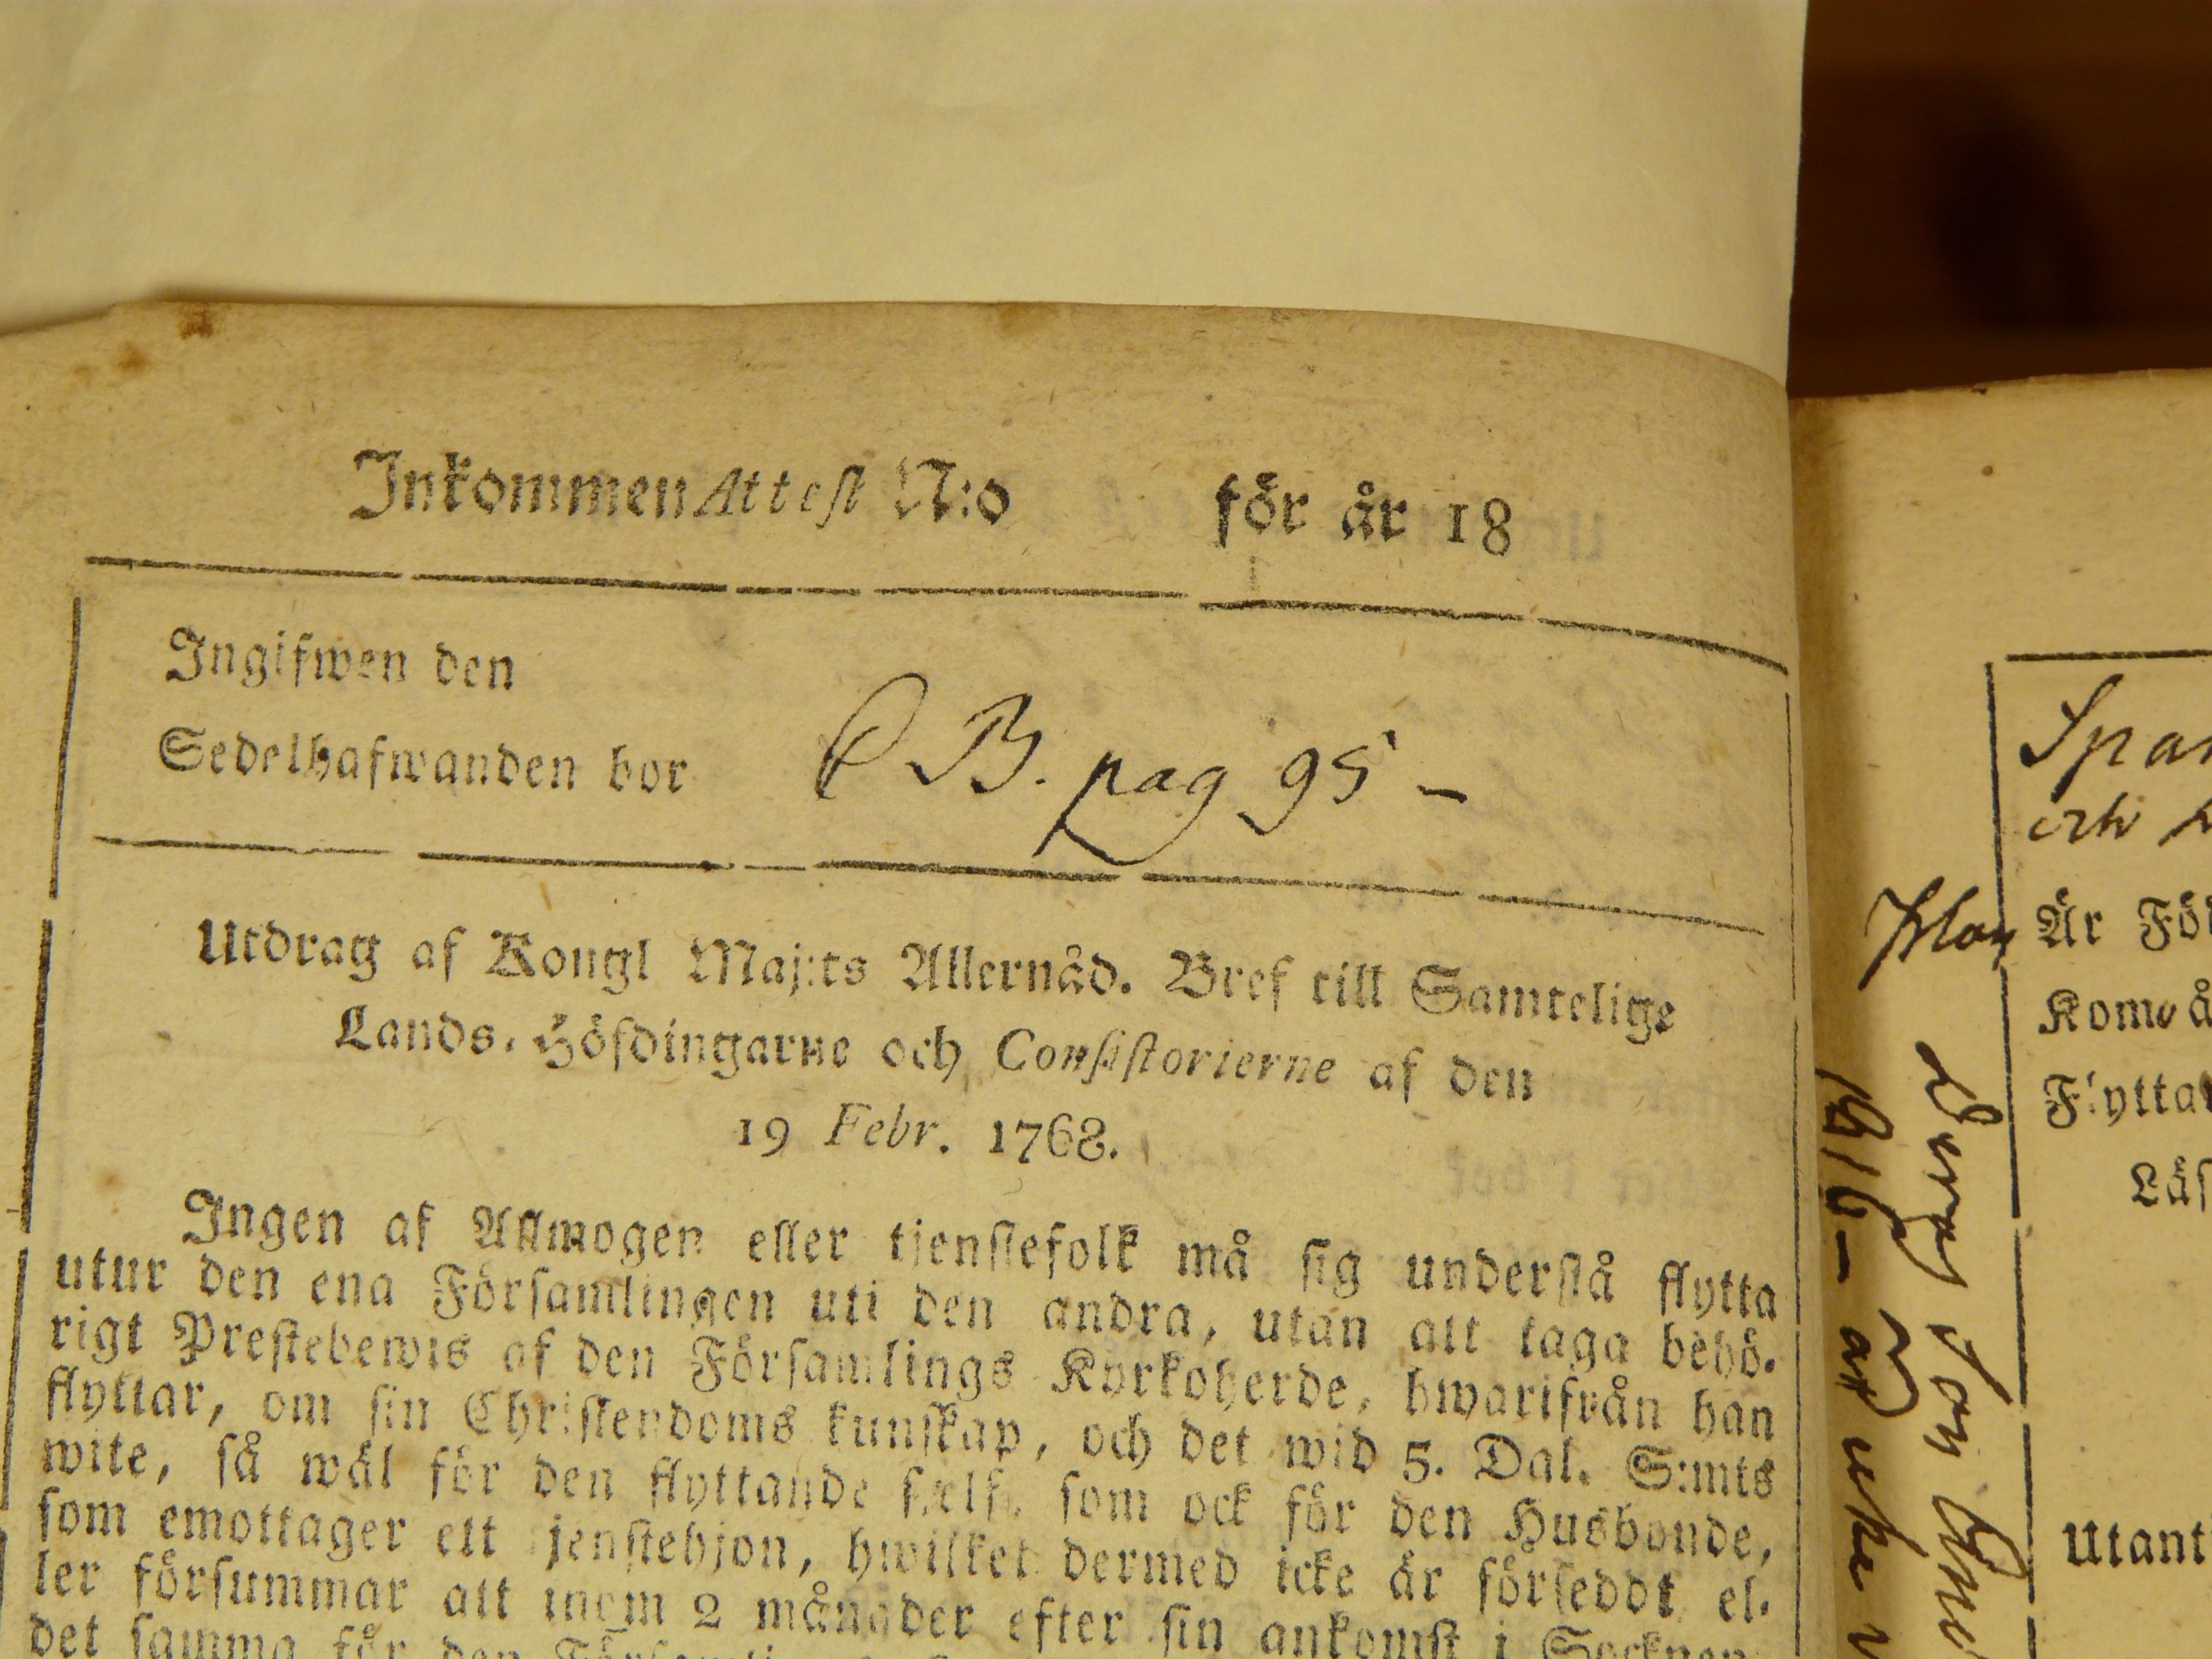 Inkommen Attest N:o för år 18
Ingifwen den
Sedelhafwanden bor
B. pag 95 -
Utdrag af Kongl Maj:ts Allernåd. Bref till Samtelige
Lands-Höfdingarne och Consistorierne af den
19 Febr. 1768.
Ingen af Allmogen eller tjenstefolk må sig understå flytta
utur den ena Församlingen uti den andra, utan att taga behö-
rigt Prestebewis af den Församlings Kyrkoherde, hwarifrån han
flyttar, om sin Christendoms kunskap, och det wid 5. Dal. S:mts
wite, så wäl för den flyttande sjelf, som ock för den Husbonde,
som emottager ett tjenstehjon, hwilket dermed icke är förseddt el-
ler försummar att inom 2 månader efter sin ankomst i Socknen
det samma för den
Är
Kom
Flytta
Läs
Utant
1816 -